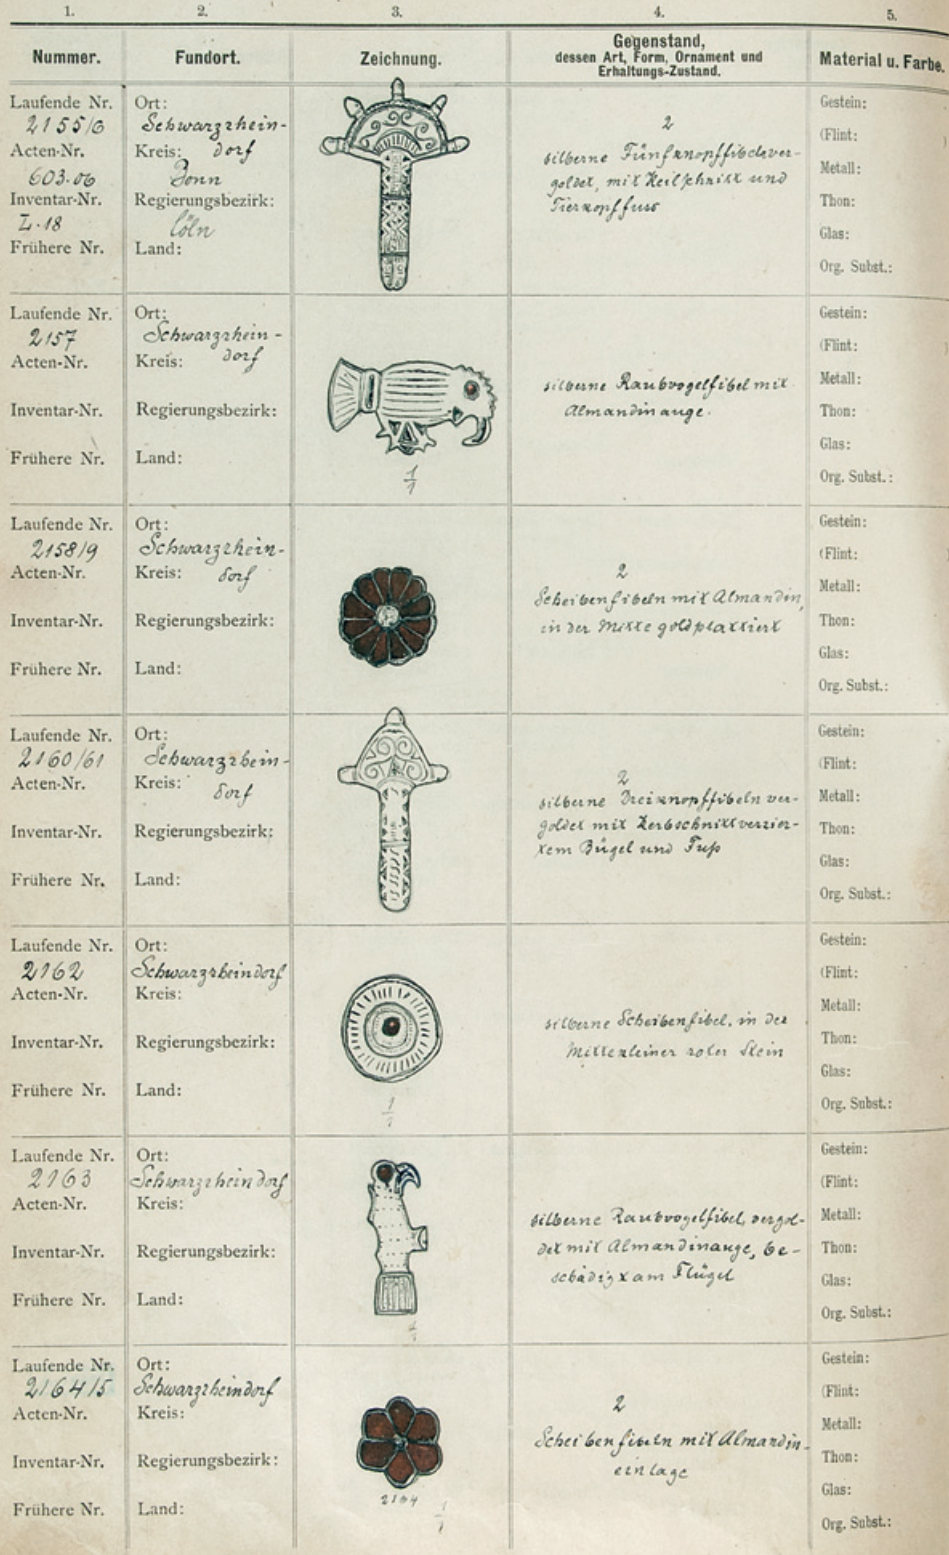 1. 2. 3. 4. 5.
Nummer. Fundort. Zeichnung. Gegenstand, dessen Art, Form, Ornament und Erhaltungs-Zustand. Material u. Farbe.
Laufende Nr.
2155/6
Acten-Nr.
603.06
Inventar-Nr.
L.18
Frühere Nr.
Ort:
Schwarzrhein-
Kreis: dorf
Bonn
Regierungsbezirk:
Cöln
Land:
2
silberne Fünfknopffibeln ver-
goldet, mit Keilschnitt und
Tierkopffuss
Gestein:
(Flint:
Metall:
Thon:
Glas:
Org. Subst.:
Laufende Nr.
2157
Acten-Nr.
Inventar-Nr.
Frühere Nr.
Ort:
Schwarzrhein-
dorf
Kreis:
Regierungsbezirk:
Land:
1/1
silberne Raubvogelfibel mit
Almandinauge.
Gestein:
(Flint:
Metall:
Thon:
Glas:
Org. Subst.:
Laufende Nr.
2158/9
Acten-Nr.
Inventar-Nr.
Frühere Nr.
Ort:
Schwarzrhein-
Kreis: dorf
Regierungsbezirk:
Land:
2
Scheibenfibeln mit Almandin,
in der Mitte goldplattiert
Gestein:
(Flint:
Metall:
Thon:
Glas:
Org. Subst.:
Laufende Nr.
2160/61
Acten-Nr.
Inventar-Nr.
Frühere Nr.
Ort:
Schwarzrhein-
Kreis: dorf
Regierungsbezirk:
Land:
2
silberne Dreiknopffibeln ver-
goldet mit Kerbschnittverzier-
tem Bügel und Fuß
Gestein:
(Flint:
Metall:
Thon:
Glas:
Org. Subst.:
Laufende Nr.
2162
Acten-Nr.
Inventar-Nr.
Frühere Nr.
Ort:
Schwarzrheindorf
Kreis:
Regierungsbezirk:
Land:
1/1
silberne Scheibenfibel, in der
Mitte kleiner roter Stein
Gestein:
(Flint:
Metall:
Thon:
Glas:
Org. Subst.:
Laufende Nr.
2163
Acten-Nr.
Inventar-Nr.
Frühere Nr.
Ort:
Schwarzrheindorf
Kreis:
Regierungsbezirk:
Land:
1/1
silberne Raubvogelfibel, vergol-
det mit Almandinauge, be-
schädigt am Flügel
Gestein:
(Flint:
Metall:
Thon:
Glas:
Org. Subst.:
Laufende Nr.
2164/5
Acten-Nr.
Inventar-Nr.
Frühere Nr.
Ort:
Schwarzrheindorf
Kreis:
Regierungsbezirk:
Land:
2164
1/1
2
Scheibenfibeln mit Almandin-
einlage
Gestein:
(Flint:
Metall:
Thon:
Glas:
Org. Subst.: